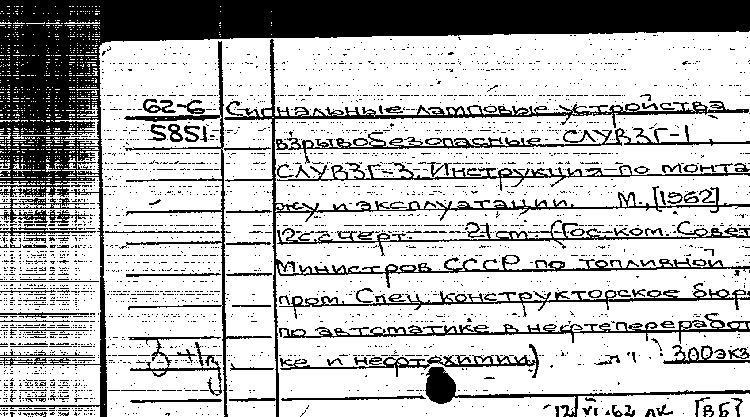 62-6 Сигнальные ламповые устройства
5851 взрывобезопасные СЛУВЗГ-1,
СЛУВЗГ-3. Инструкция по монта
жу и эксплуатации. М., [1962].
12с. с черт. 21 см. (Гос. ком. Совет
Министров СССР по топливной
пром. Спец. конструкторское бюр
по автоматике в нефтепереработ
ке и нефтехимии) 300 экз
12/VI-62 [ВБ]